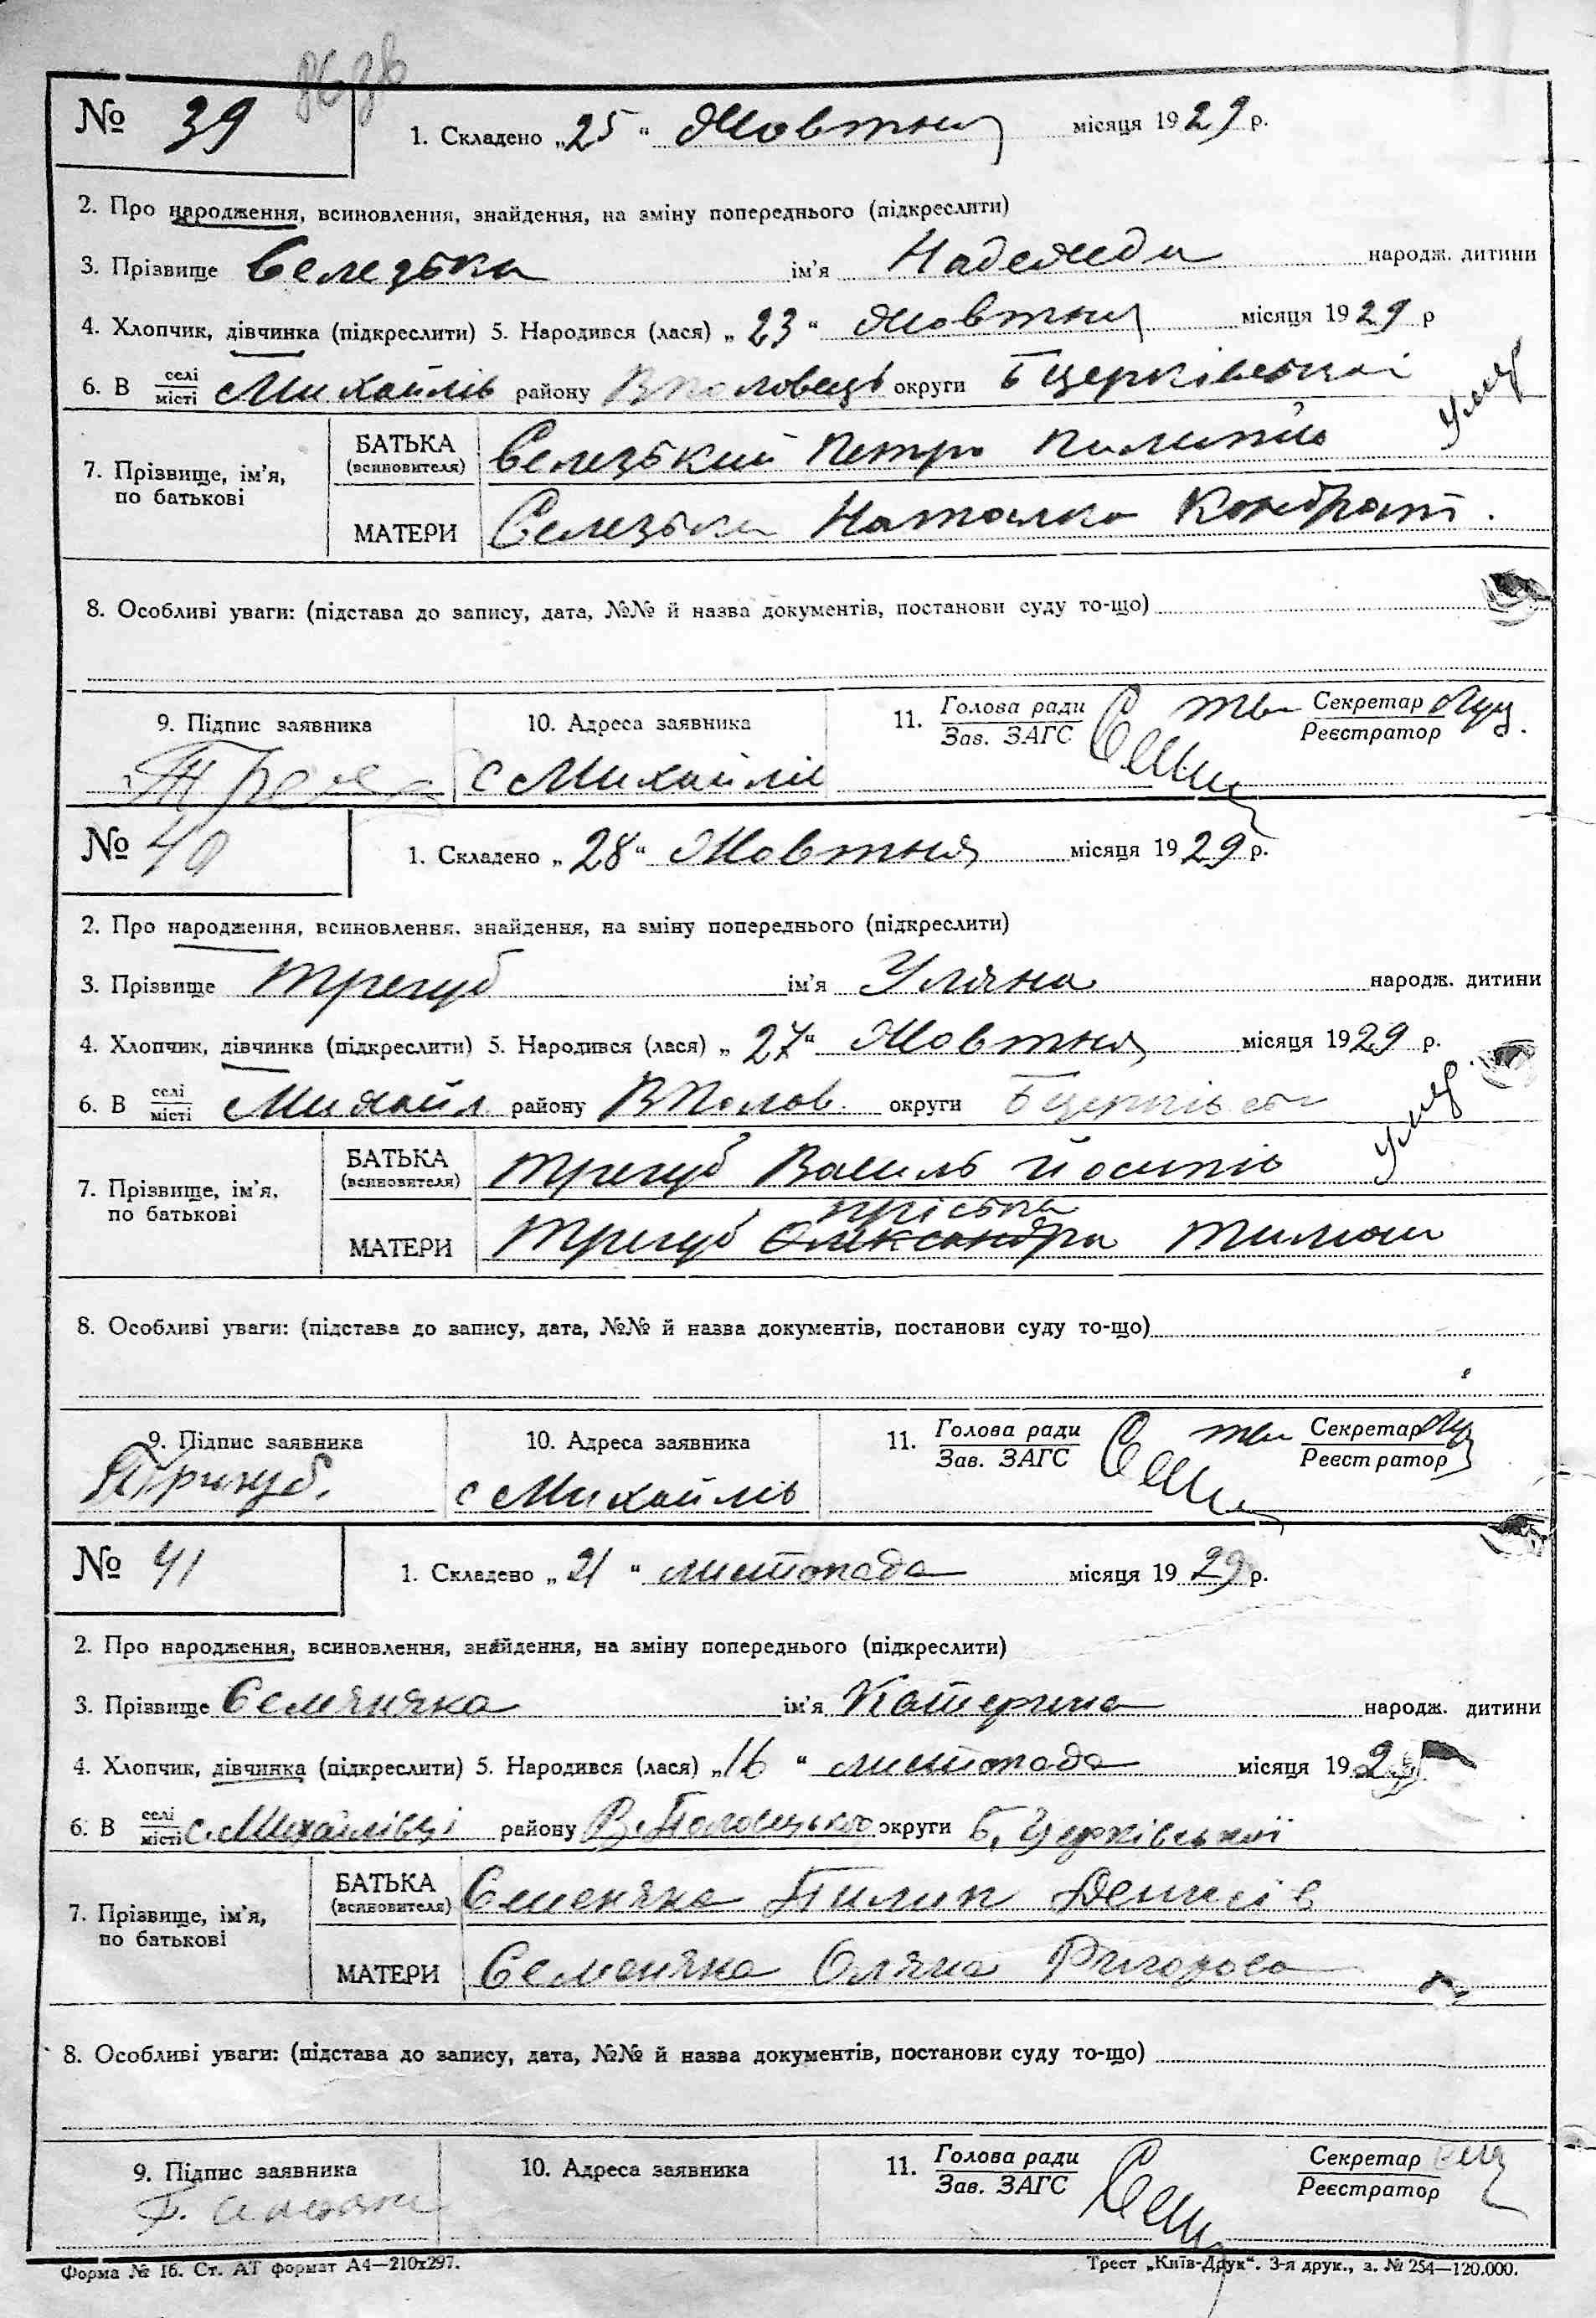 № 39
1. Складено „25“ Жовтня місяця 1929 р.
2. Про народження, всиновлення, знайдення, на зміну попереднього (підкреслити)
3. Прізвище Селезька ім'я Надежда народж. дитини
4. Хлопчик, дівчинка (підкреслити) 5. Народився (лася) „23“ Жовтня місяця 1929 р
6. В селі місті Михайлів району ВПоловець округи Бцерківської
7. Прізвище, ім'я, по батькові
БАТЬКА (всиновителя) Селезький Петро Пилипів
МАТЕРИ Селезька Наталка Кондрат.
8. Особливі уваги: (підстава до запису, дата, №№ й назва документів, постанови суду то-що)
9. Підпис заявника
10. Адреса заявника
11. Голова ради Зав. ЗАГС
Секретар Реєстратор
с Михайлів
№ 40
1. Складено „28“ Жовтня місяця 1929 р.
2. Про народження, всиновлення. знайдення, на зміну попереднього (підкреслити)
3. Прізвище Трегуб ім'я Уляна народж. дитини
4. Хлопчик, дівчинка (підкреслити) 5. Народився (лася) „27“ Жовтня місяця 1929 р.
6. В селі місті Михайл району ВПолов. округи
7. Прізвище, ім'я, по батькові
БАТЬКА (всиновителя) Трегуб Василь Йосипів
пріська
МАТЕРИ Трегуб Олександра
8. Особливі уваги: (підстава до запису, дата, №№ й назва документів, постанови суду то-що)
9. Підпис заявника
10. Адреса заявника
11. Голова ради Зав. ЗАГС
Секретар Реєстратор
Тригуб.
с Михайлів
№ 41
1. Складено „21“ листопада місяця 1929 р.
2. Про народження, всиновлення, знайдення, на зміну попереднього (підкреслити)
3. Прізвище Семеняка ім'я Катерина народж. дитини
4. Хлопчик, дівчинка (підкреслити) 5. Народився (лася) „16“ листопада місяця 192
6. В селі місті с. Михайлівці району В. Половецького округи Б. Церківської
7. Прізвище, ім'я, по батькові
БАТЬКА (всиновителя) Семеняка Пилип Денисів
МАТЕРИ Семеняка Оляна Григорова
8. Особливі уваги: (підстава до запису, дата, №№ й назва документів, постанови суду то-що)
9. Підпис заявника
10. Адреса заявника
11. Голова ради Зав. ЗАГС
Секретар Реєстратор
Форма № 16. Ст. АТ формат А4—210х297.
Трест „Київ-Друк“. 3-я друк., з. № 254—120.000.